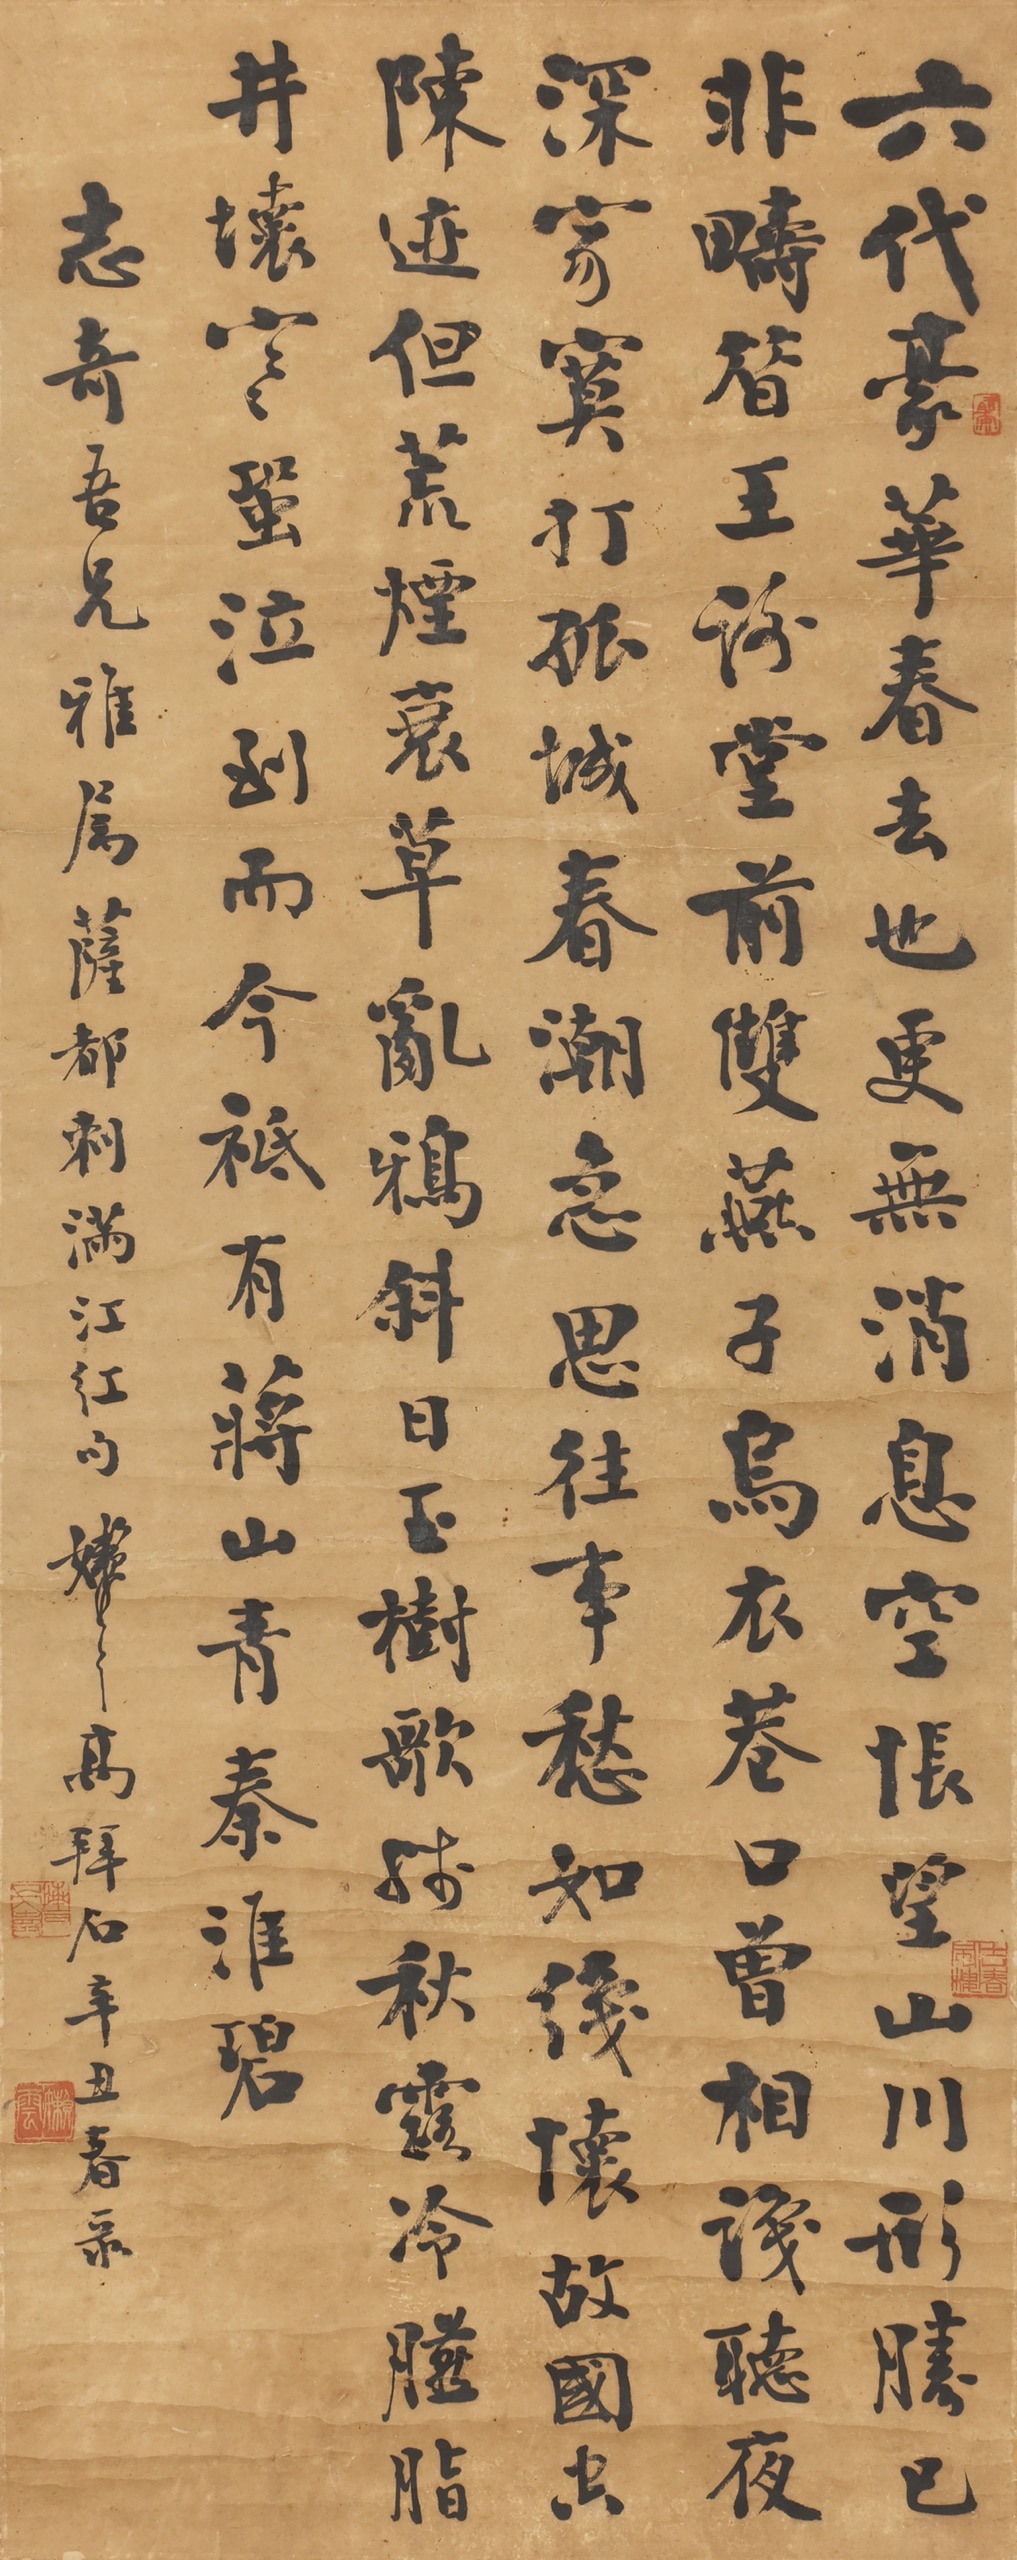 六代豪華春去也更無消息空悵望山川形勝已
非疇昔王謝堂前雙燕子烏衣巷口曾相識聽夜
深寂寞打孤城春潮急思往事愁如織懷故國空
陳迹但荒煙衰草亂鴉斜日玉樹歌殘秋露冷臙脂
井壞寒螿泣到而今祗有蔣山青秦淮碧
志奇吾兄雅属薩都剌滿江紅句嬾云高拜石辛丑春录
古春風樓
嬾雲